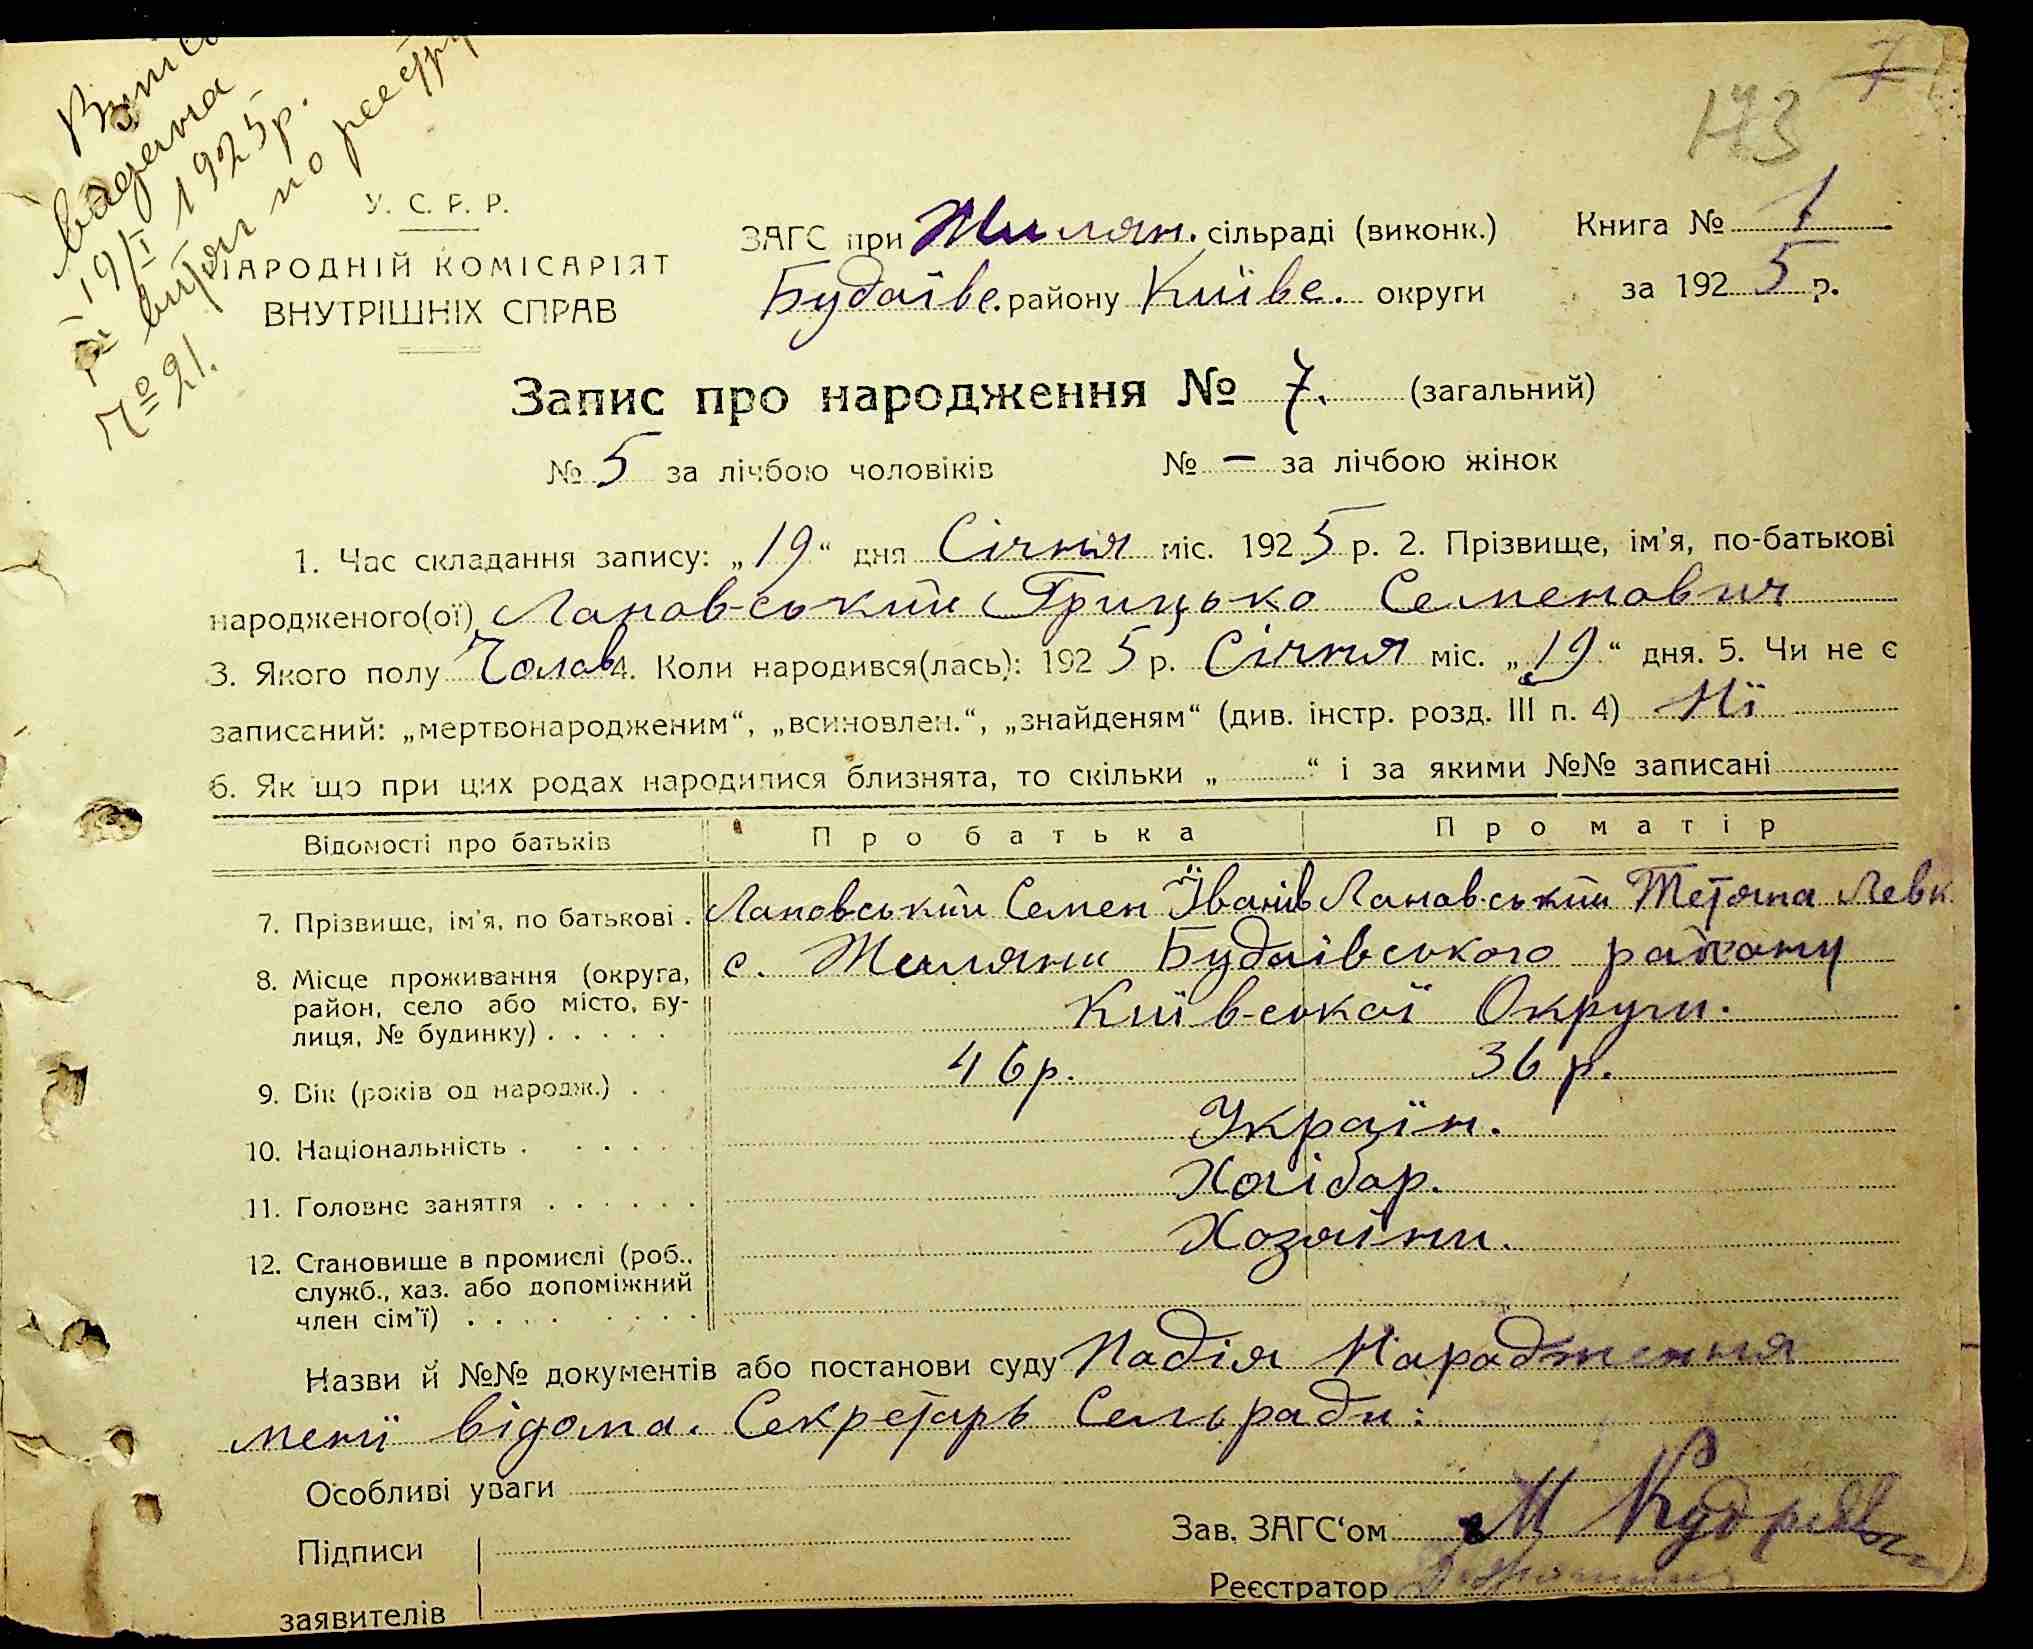 видана
19/I 1925 р.
витяг по реєстру
№ 21.
173
7
У. С. Р. Р.
НАРОДНІЙ КОМІСАРІЯТ
ВНУТРІШНІХ СПРАВ
ЗАГС при Жилян. сільраді (виконк.) Книга № 1
Будаївс. району Київс. округи за 1925 р.
Запис про народження № 7. (загальний)
№ 5 за лічбою чоловіків № — за лічбою жінок
1. Час складання запису: „19“ дня Січня міс. 1925 р. 2. Прізвище, ім'я, по-батькові
народженого(ої) Лановський Грицько Семенович
3. Якого полу Чолов 4. Коли народився(лась): 1925 р. Січня міс. „19“ дня. 5. Чи не є
записаний: „мертвонародженим“, „всиновлен.“, „знайденям“ (див. інстр. розд. III п. 4) Нї
6. Як що при цих родах народилися близнята, то скільки „ “ і за якими №№ записані
Відомості про батьків Про батька Про матір
7. Прізвище, ім'я, по батькові . Лановський Семен Іванів Лановський Тетяна Левк
8. Місце проживання (округа, с. Жиляни Будаївського району
район, село або місто, ву- Київської Округи.
лиця, № будинку) . . . . .
9. Вік (років од народж.) . . 46 р. 36 р.
10. Національність . . . . . Україн.
11. Головне заняття . . . . . . Хлібор.
12. Становище в промислі (роб., Хозяїни.
служб., хаз. або допоміжний
член сім'ї) . . . . . . . .
Назви й №№ документів або постанови суду Подія Народження
менї відома. Секретарь Сельради:
Особливі уваги
Зав. ЗАГС'ом
Підписи
Реєстратор
заявителів